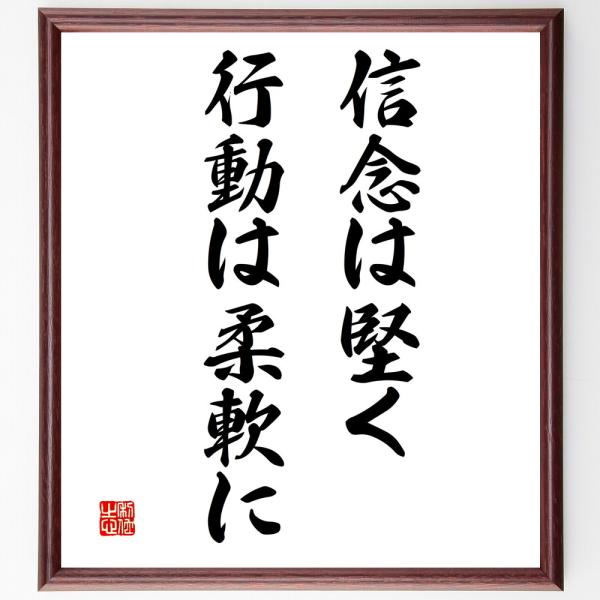 信念は堅く
行動は柔軟に